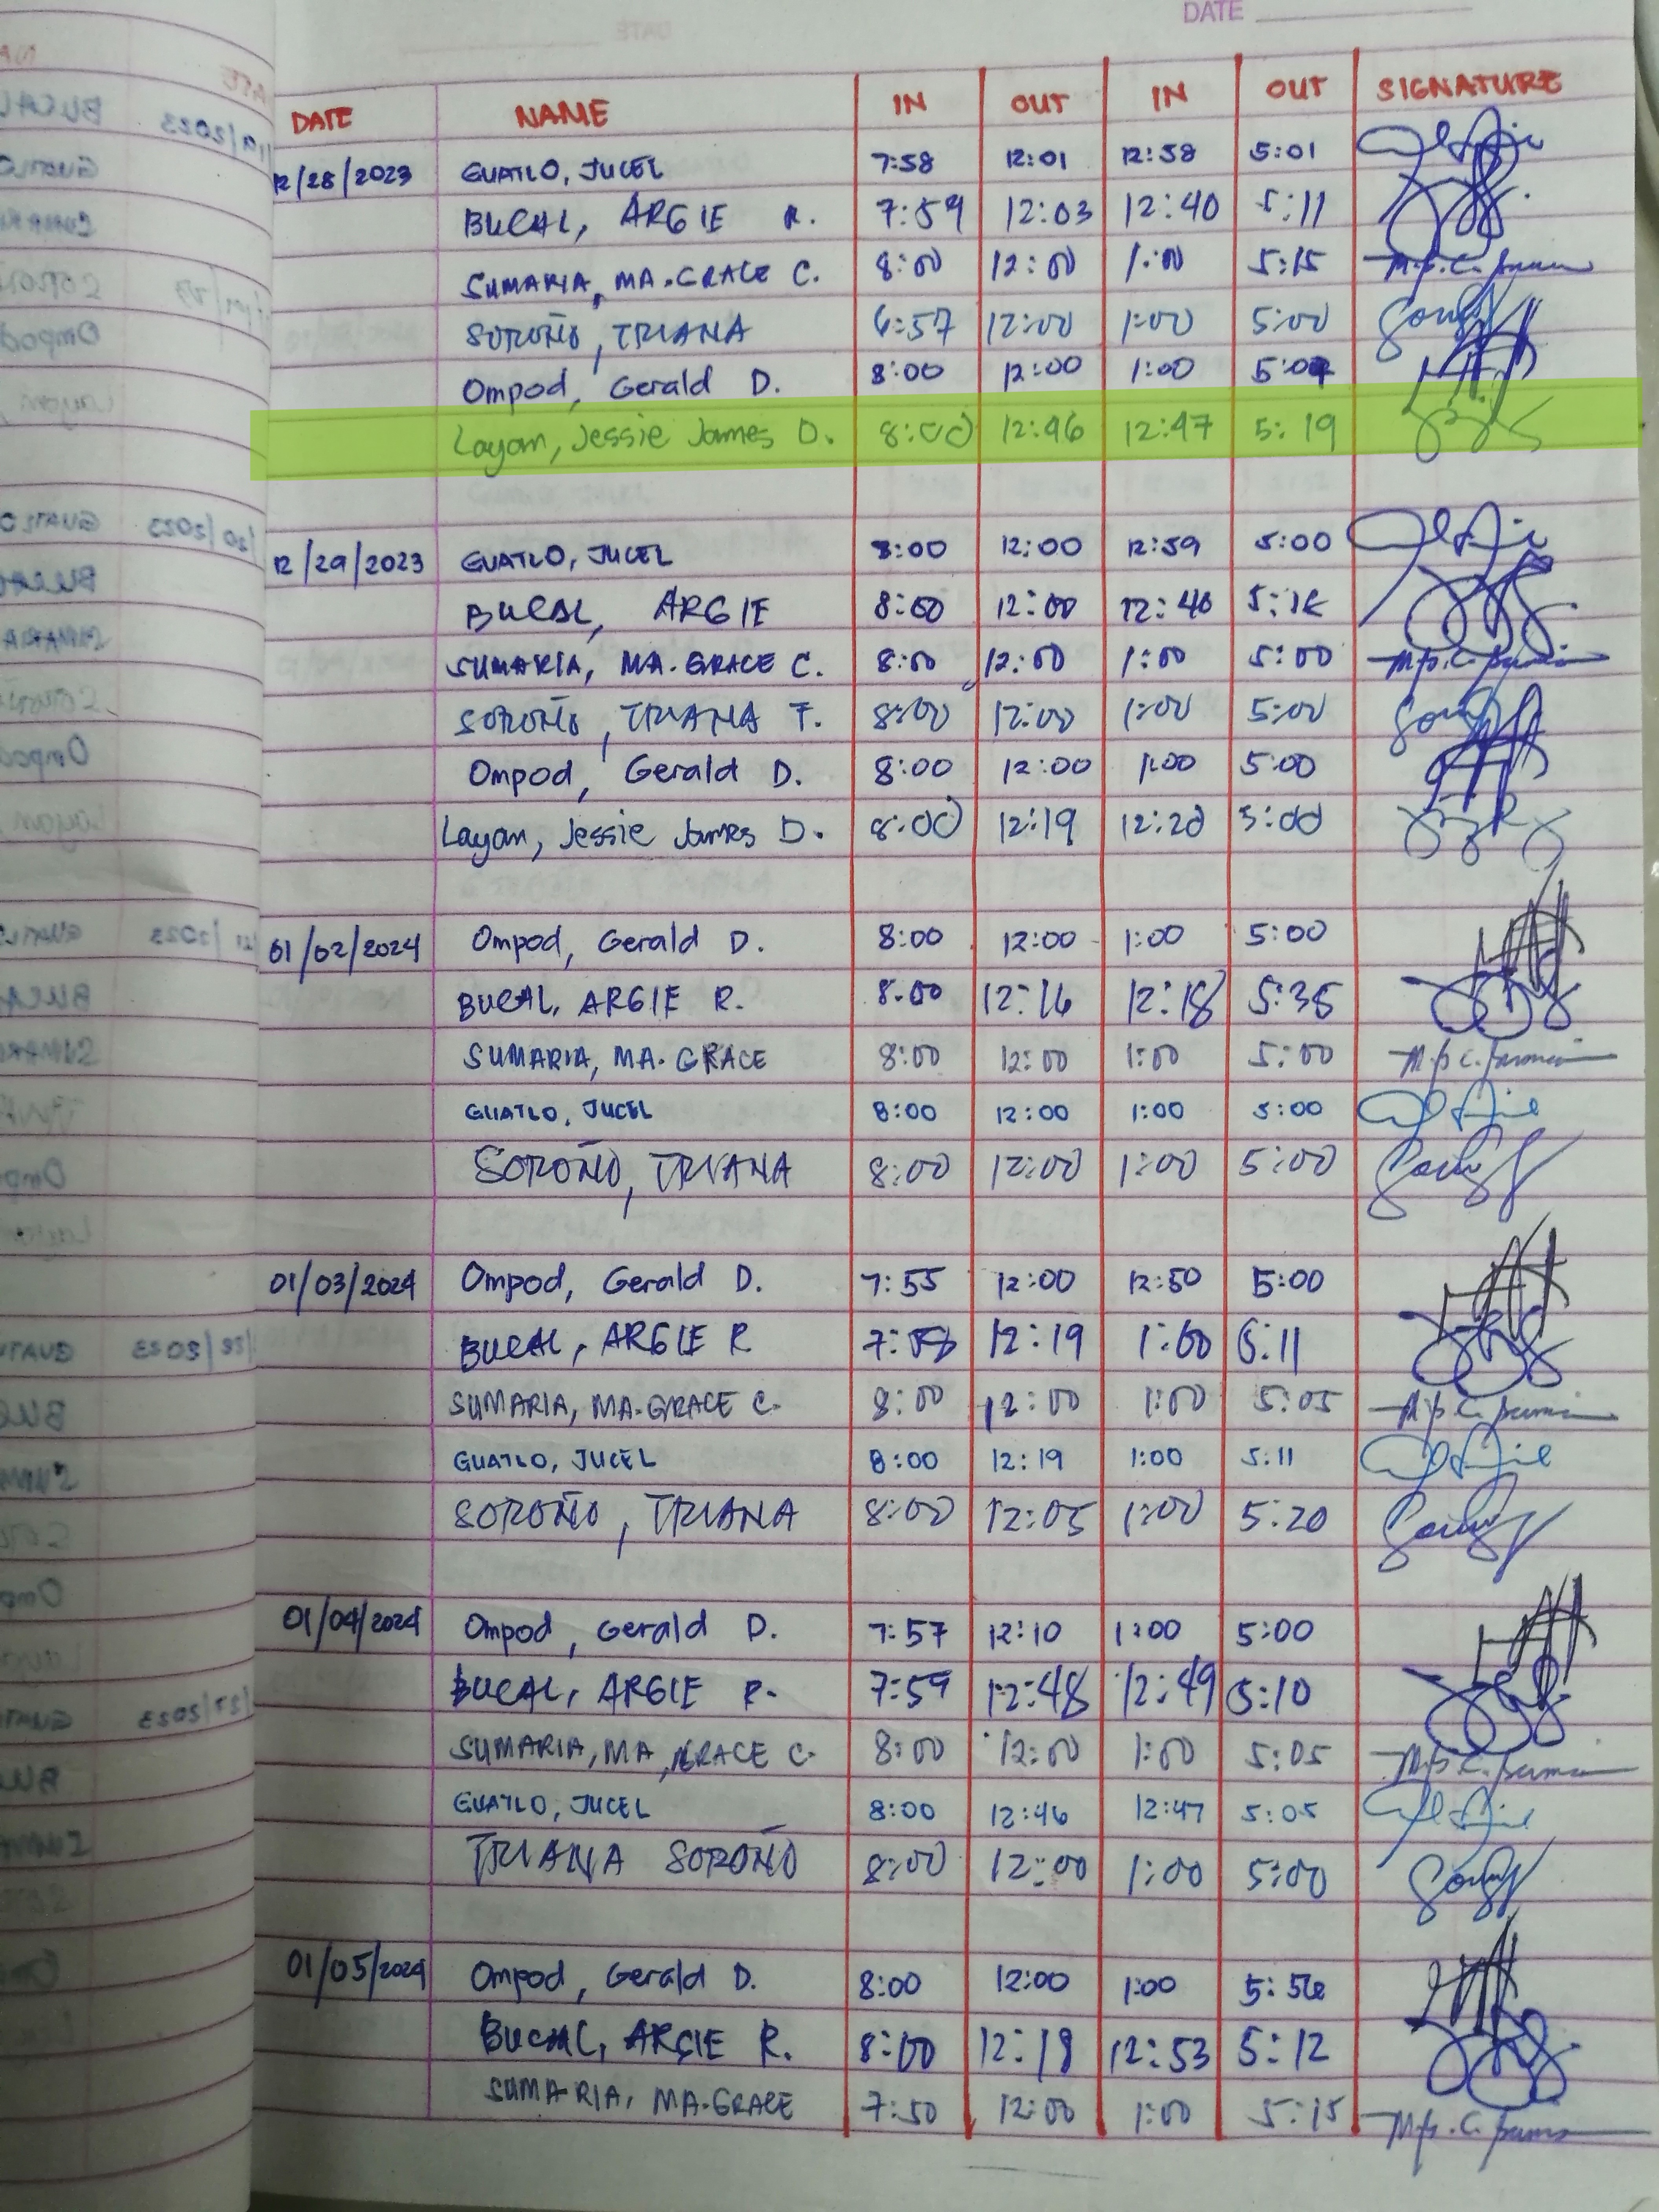 DATE
DATE NAME IN OUT IN OUT SIGNATURE
12/28/2023 GUATLO, JUCEL 7:58 12:01 12:58 5:01
BUCAL, ARGIE R. 7:59 12:03 12:40 5:11
SUMARIA, MA.GRACE C. 8:00 12:00 1:00 5:15
SOROÑO, TRIANA 6:57 12:00 1:00 5:00
Ompod, Gerald D. 8:00 12:00 1:00
Layam, Jessie James D. 8:00 12:46 12:47 5:19
12/29/2023 GUATLO, JUCEL 8:00 12:00 12:59 5:00
BUCAL, ARGIE 8:00 12:00 12:40
SUMARIA, MA.GRACE C. 8:00 12:00 1:00 5:00
SOROÑO, TRIANA F. 8:00 12:00 1:00 5:00
Ompod, Gerald D. 8:00 12:00 1:00 5:00
Layam, Jessie James D. 8:00 12:19 12:20 5:00
01/02/2024 Ompod, Gerald D. 8:00 12:00 1:00 5:00
BUCAL, ARGIE R. 8:00 12:16 12:18 5:35
SUMARIA, MA. GRACE 8:00 12:00 1:00 5:00
GUATLO, JUCEL 8:00 12:00 1:00 5:00
SOROÑO, TRIANA 8:00 12:00 1:00 5:00
01/03/2024 Ompod, Gerald D. 7:55 12:00 12:50 5:00
BUCAL, ARGIE R 7:58 12:19 1:00 5:11
SUMARIA, MA.GRACE C. 8:00 12:00 1:00 5:05
GUATLO, JUCEL 8:00 12:19 1:00 5:11
SOROÑO, TRIANA 8:00 12:05 1:00 5:20
01/04/2024 Ompod, Gerald D. 7:57 12:10 1:00 5:00
BUCAL, ARGIE R. 7:59 12:48 12:49 5:10
SUMARIA, MA, GRACE C. 8:00 12:00 1:00 5:05
GUATLO, JUCEL 8:00 12:46 12:47 5:05
TRIANA SOROÑO 8:00 12:00 1:00 5:00
01/05/2024 Ompod, Gerald D. 8:00 12:00 1:00 5:56
BUCAL, ARGIE R. 8:00 12:18 12:53 5:12
SUMARIA, MA.GRACE 7:50 12:00 1:00 5:15